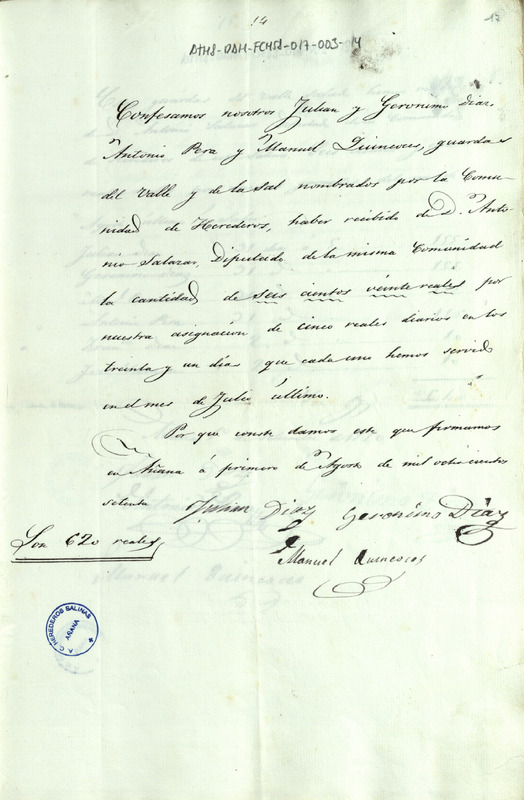 14
17
ATHS-DDH-FCH51-017-003-14
Confesamos nosotros Julian y Geronimo Diaz
Antonio Pera y Manuel Quincoces, guardas
del Valle y de la Sal nombrados por la Comu-
nidad de Herederos, haber recibido de D. Anto-
nio Salazar, Diputado de la misma Comunidad
la cantidad de seis cientos veinte reales por
nuestra asignacion de cinco reales diarios en los
treinta y un dias que cada uno hemos servido
en el mes de Julio último.
Por que conste damos este que firmamos
en Añana á primero de Agosto de mil ochocientos
setenta
Julian Diaz
Geronimo Diaz
Son 620 reales
Manuel Quincoces
A. C. HEREDEROS SALINAS
AÑANA